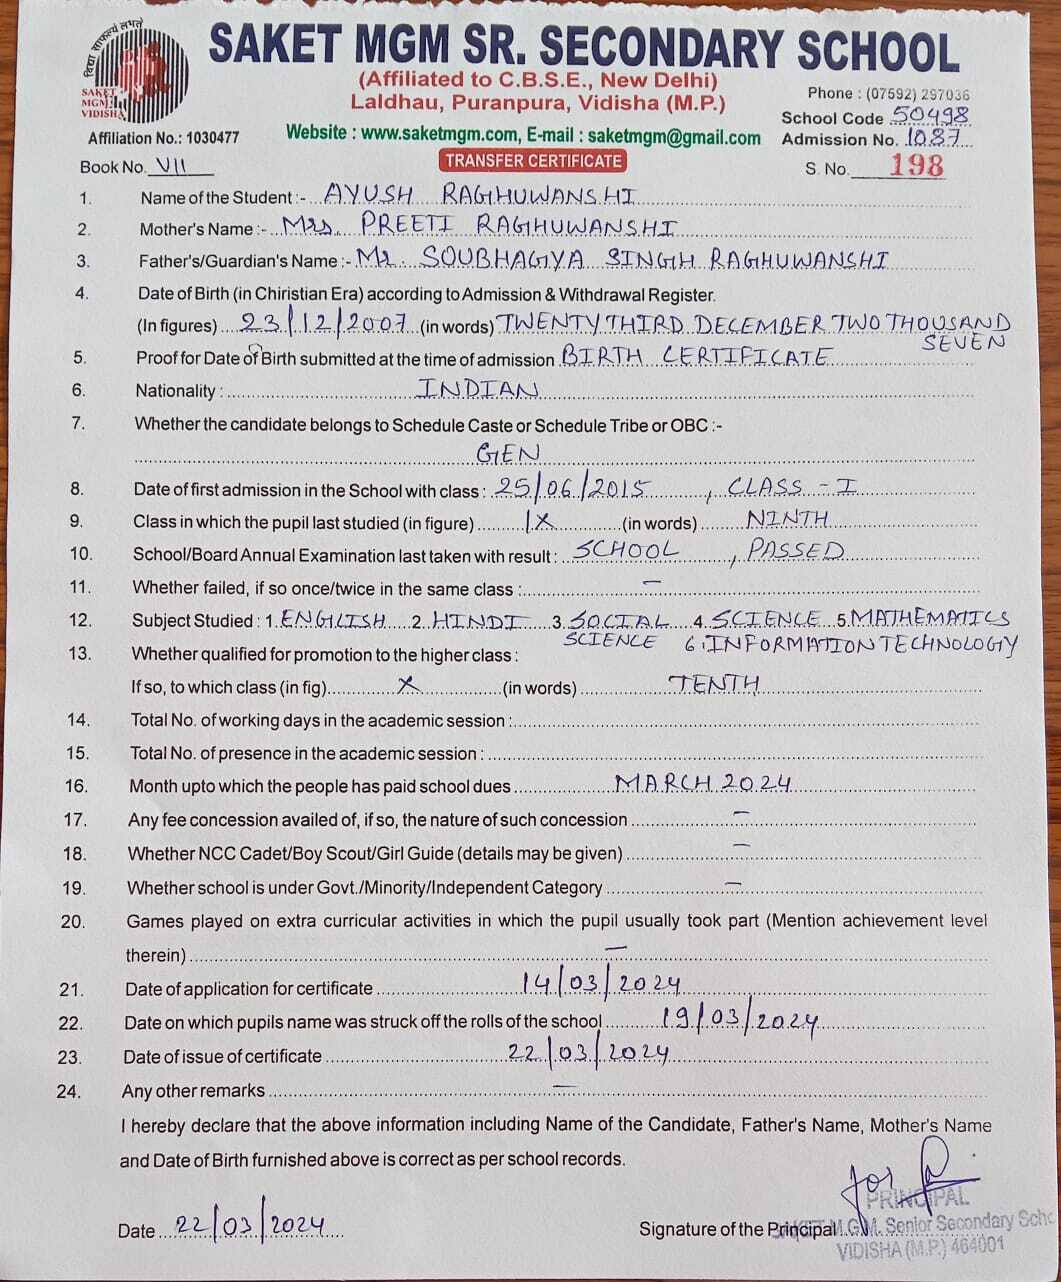 विद्या साफल्यं लभते
SAKET
MGM
VIDISHA
SAKET MGM SR. SECONDARY SCHOOL
(Affiliated to C.B.S.E., New Delhi)
Laldhau, Puranpura, Vidisha (M.P.)
Phone : (07592) 297036
School Code 50498
Affiliation No.: 1030477
Website : www.saketmgm.com, E-mail : saketmgm@gmail.com
Admission No. 1087
Book No. VII
TRANSFER CERTIFICATE
S. No. 198
1. Name of the Student :- AYUSH RAGHUWANSHI
2. Mother's Name :- Mrs. PREETI RAGHUWANSHI
3. Father's/Guardian's Name :- Mr. SOUBHAGYA SINGH RAGHUWANSHI
4. Date of Birth (in Chiristian Era) according to Admission & Withdrawal Register.
(In figures) 23/12/2007 (in words) TWENTY THIRD DECEMBER TWO THOUSAND
SEVEN
5. Proof for Date of Birth submitted at the time of admission BIRTH CERTIFICATE
6. Nationality : INDIAN
7. Whether the candidate belongs to Schedule Caste or Schedule Tribe or OBC :-
GEN
8. Date of first admission in the School with class : 25/06/2015, CLASS - I
9. Class in which the pupil last studied (in figure) IX (in words) NINTH
10. School/Board Annual Examination last taken with result : SCHOOL, PASSED
11. Whether failed, if so once/twice in the same class : –
12. Subject Studied : 1. ENGLISH 2. HINDI 3. SOCIAL 4. SCIENCE 5. MATHEMATICS
SCIENCE 6. INFORMATION TECHNOLOGY
13. Whether qualified for promotion to the higher class :
If so, to which class (in fig) X (in words) TENTH
14. Total No. of working days in the academic session :
15. Total No. of presence in the academic session :
16. Month upto which the people has paid school dues MARCH 2024
17. Any fee concession availed of, if so, the nature of such concession –
18. Whether NCC Cadet/Boy Scout/Girl Guide (details may be given) –
19. Whether school is under Govt./Minority/Independent Category –
20. Games played on extra curricular activities in which the pupil usually took part (Mention achievement level
therein) –
21. Date of application for certificate 14/03/2024
22. Date on which pupils name was struck off the rolls of the school 19/03/2024
23. Date of issue of certificate 22/03/2024
24. Any other remarks –
I hereby declare that the above information including Name of the Candidate, Father's Name, Mother's Name
and Date of Birth furnished above is correct as per school records.
for
PRINCIPAL
Date 22/03/2024
Signature of the Principal
SAKET M.G.M. Senior Secondary Scho
VIDISHA (M.P.) 464001